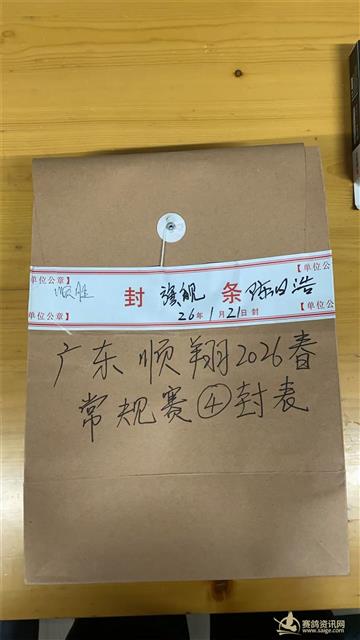 单位公章】
【单位公
顺胜
封 旗舰 条 陈日浩
单位公章】
26年1月21日封
【单位公
广东顺翔2026春
常规赛④封表
赛鸽资讯网
www.saige.com